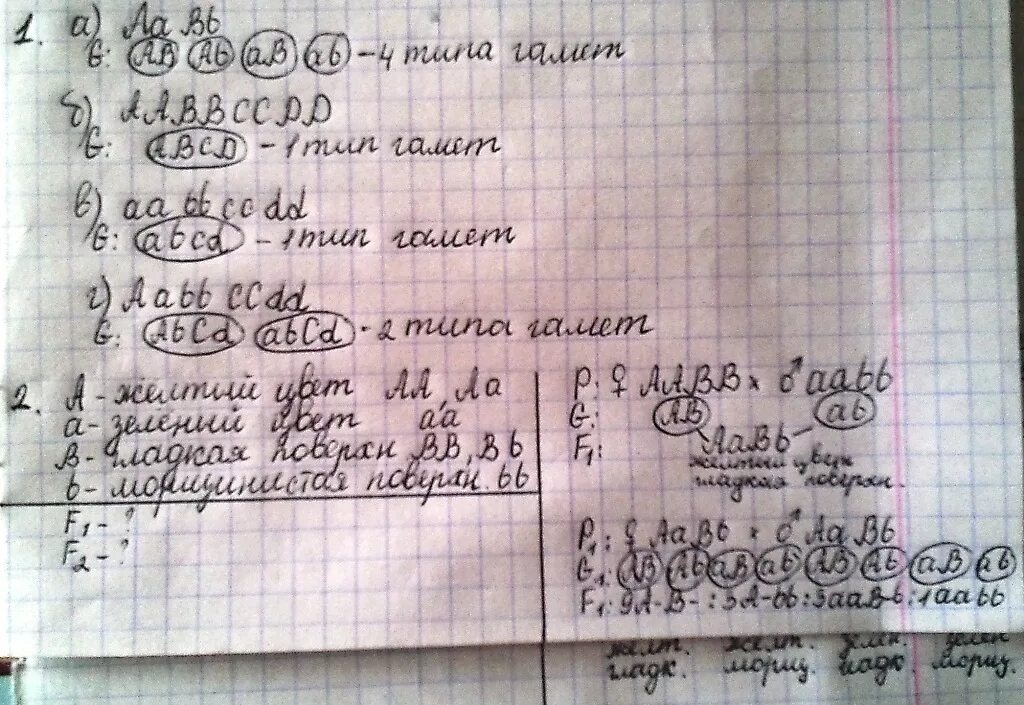 1. а) Aa Bb
G: AB Ab aB ab – 4 типа гамет
б) AABBCCDD
G: ABCD – 1 тип гамет
в) aa bb cc dd
G: abcd – 1 тип гамет
г) Aabb CCdd
G: AbCd abCd - 2 типа гамет
2. A - жёлтий цвет AA, Aa
a - зелёний цвет aa
B - гладкая поверхн BB, Bb
b - морщинистая поверхн. bb
F1 - ?
F2 - ?
P: ♀ AABB × ♂ aabb
G: AB ab
F1: AaBb
жёлтый цвет
гладкая поверхн.
P1: ♀ AaBb × ♂ AaBb
G1: AB Ab aB ab AB Ab aB ab
F1: 9A-B- : 3A-bb : 3aaB-b : 1aabb
желт. желт. зелен. зелен
гладк. морщ. гладк. морщ.